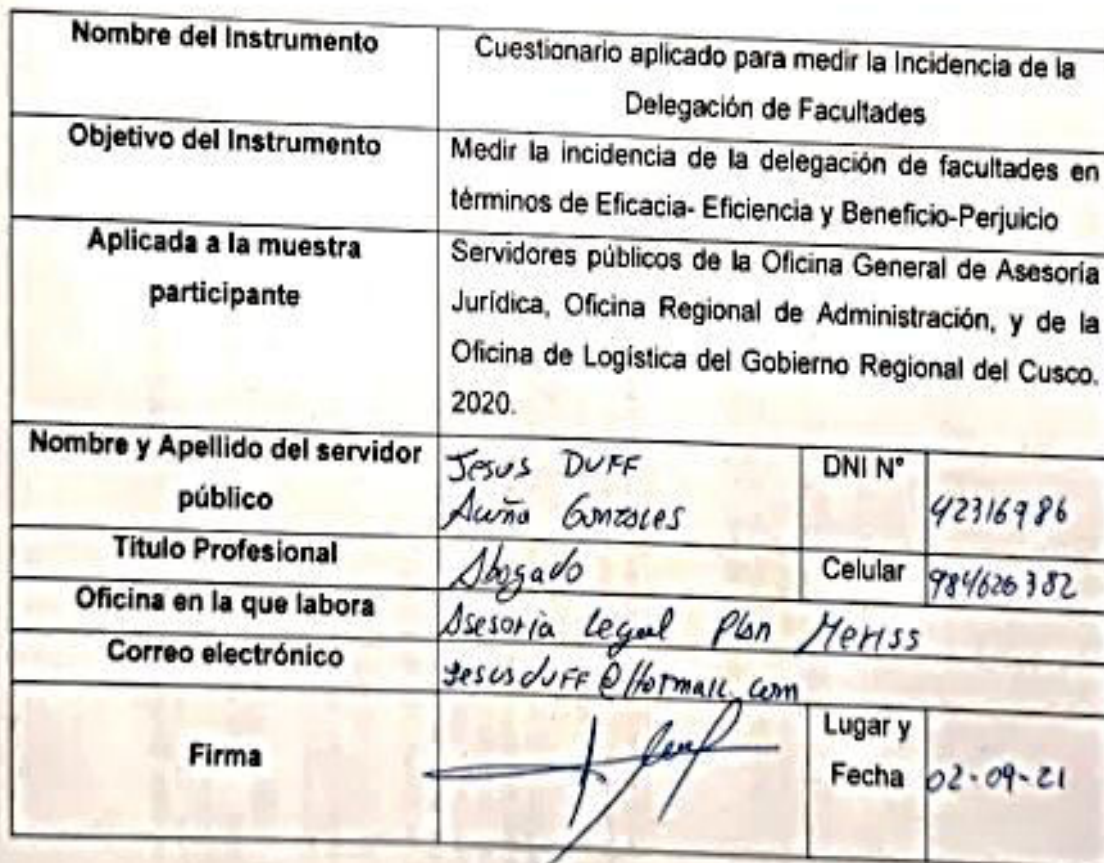 Nombre del Instrumento
Cuestionario aplicado para medir la Incidencia de la
Delegación de Facultades
Objetivo del Instrumento
Medir la incidencia de la delegación de facultades en
términos de Eficacia- Eficiencia y Beneficio-Perjuicio
Aplicada a la muestra
participante
Servidores públicos de la Oficina General de Asesoría
Jurídica, Oficina Regional de Administración, y de la
Oficina de Logística del Gobierno Regional del Cusco.
2020.
Nombre y Apellido del servidor
público
Jesus DUFF
Acuña Gonzales
DNI N°
42316986
Título Profesional
Abogado
Celular
984626382
Oficina en la que labora
Asesoria Legal Plan Meriss
Correo electrónico
jesusduff@Hotmail.com
Firma
Lugar y
Fecha
02-09-21